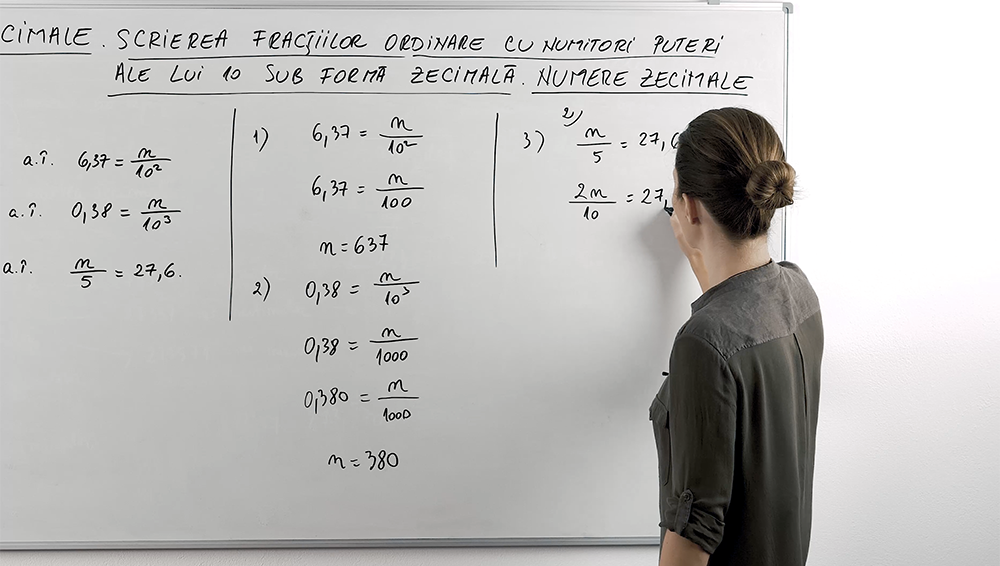 CIMALE. SCRIEREA FRACȚIILOR ORDINARE CU NUMITORI PUTERI
ALE LUI 10 SUB FORMĂ ZECIMALĂ. NUMERE ZECIMALE
a.î. 6,37 = n/10²
a.î. 0,38 = n/10³
a.î. n/5 = 27,6.
1) 6,37 = n/10²
6,37 = n/100
n = 637
2) 0,38 = n/10³
0,38 = n/1000
0,380 = n/1000
n = 380
3) ²⁾n/5 = 27,6
2n/10 = 27,